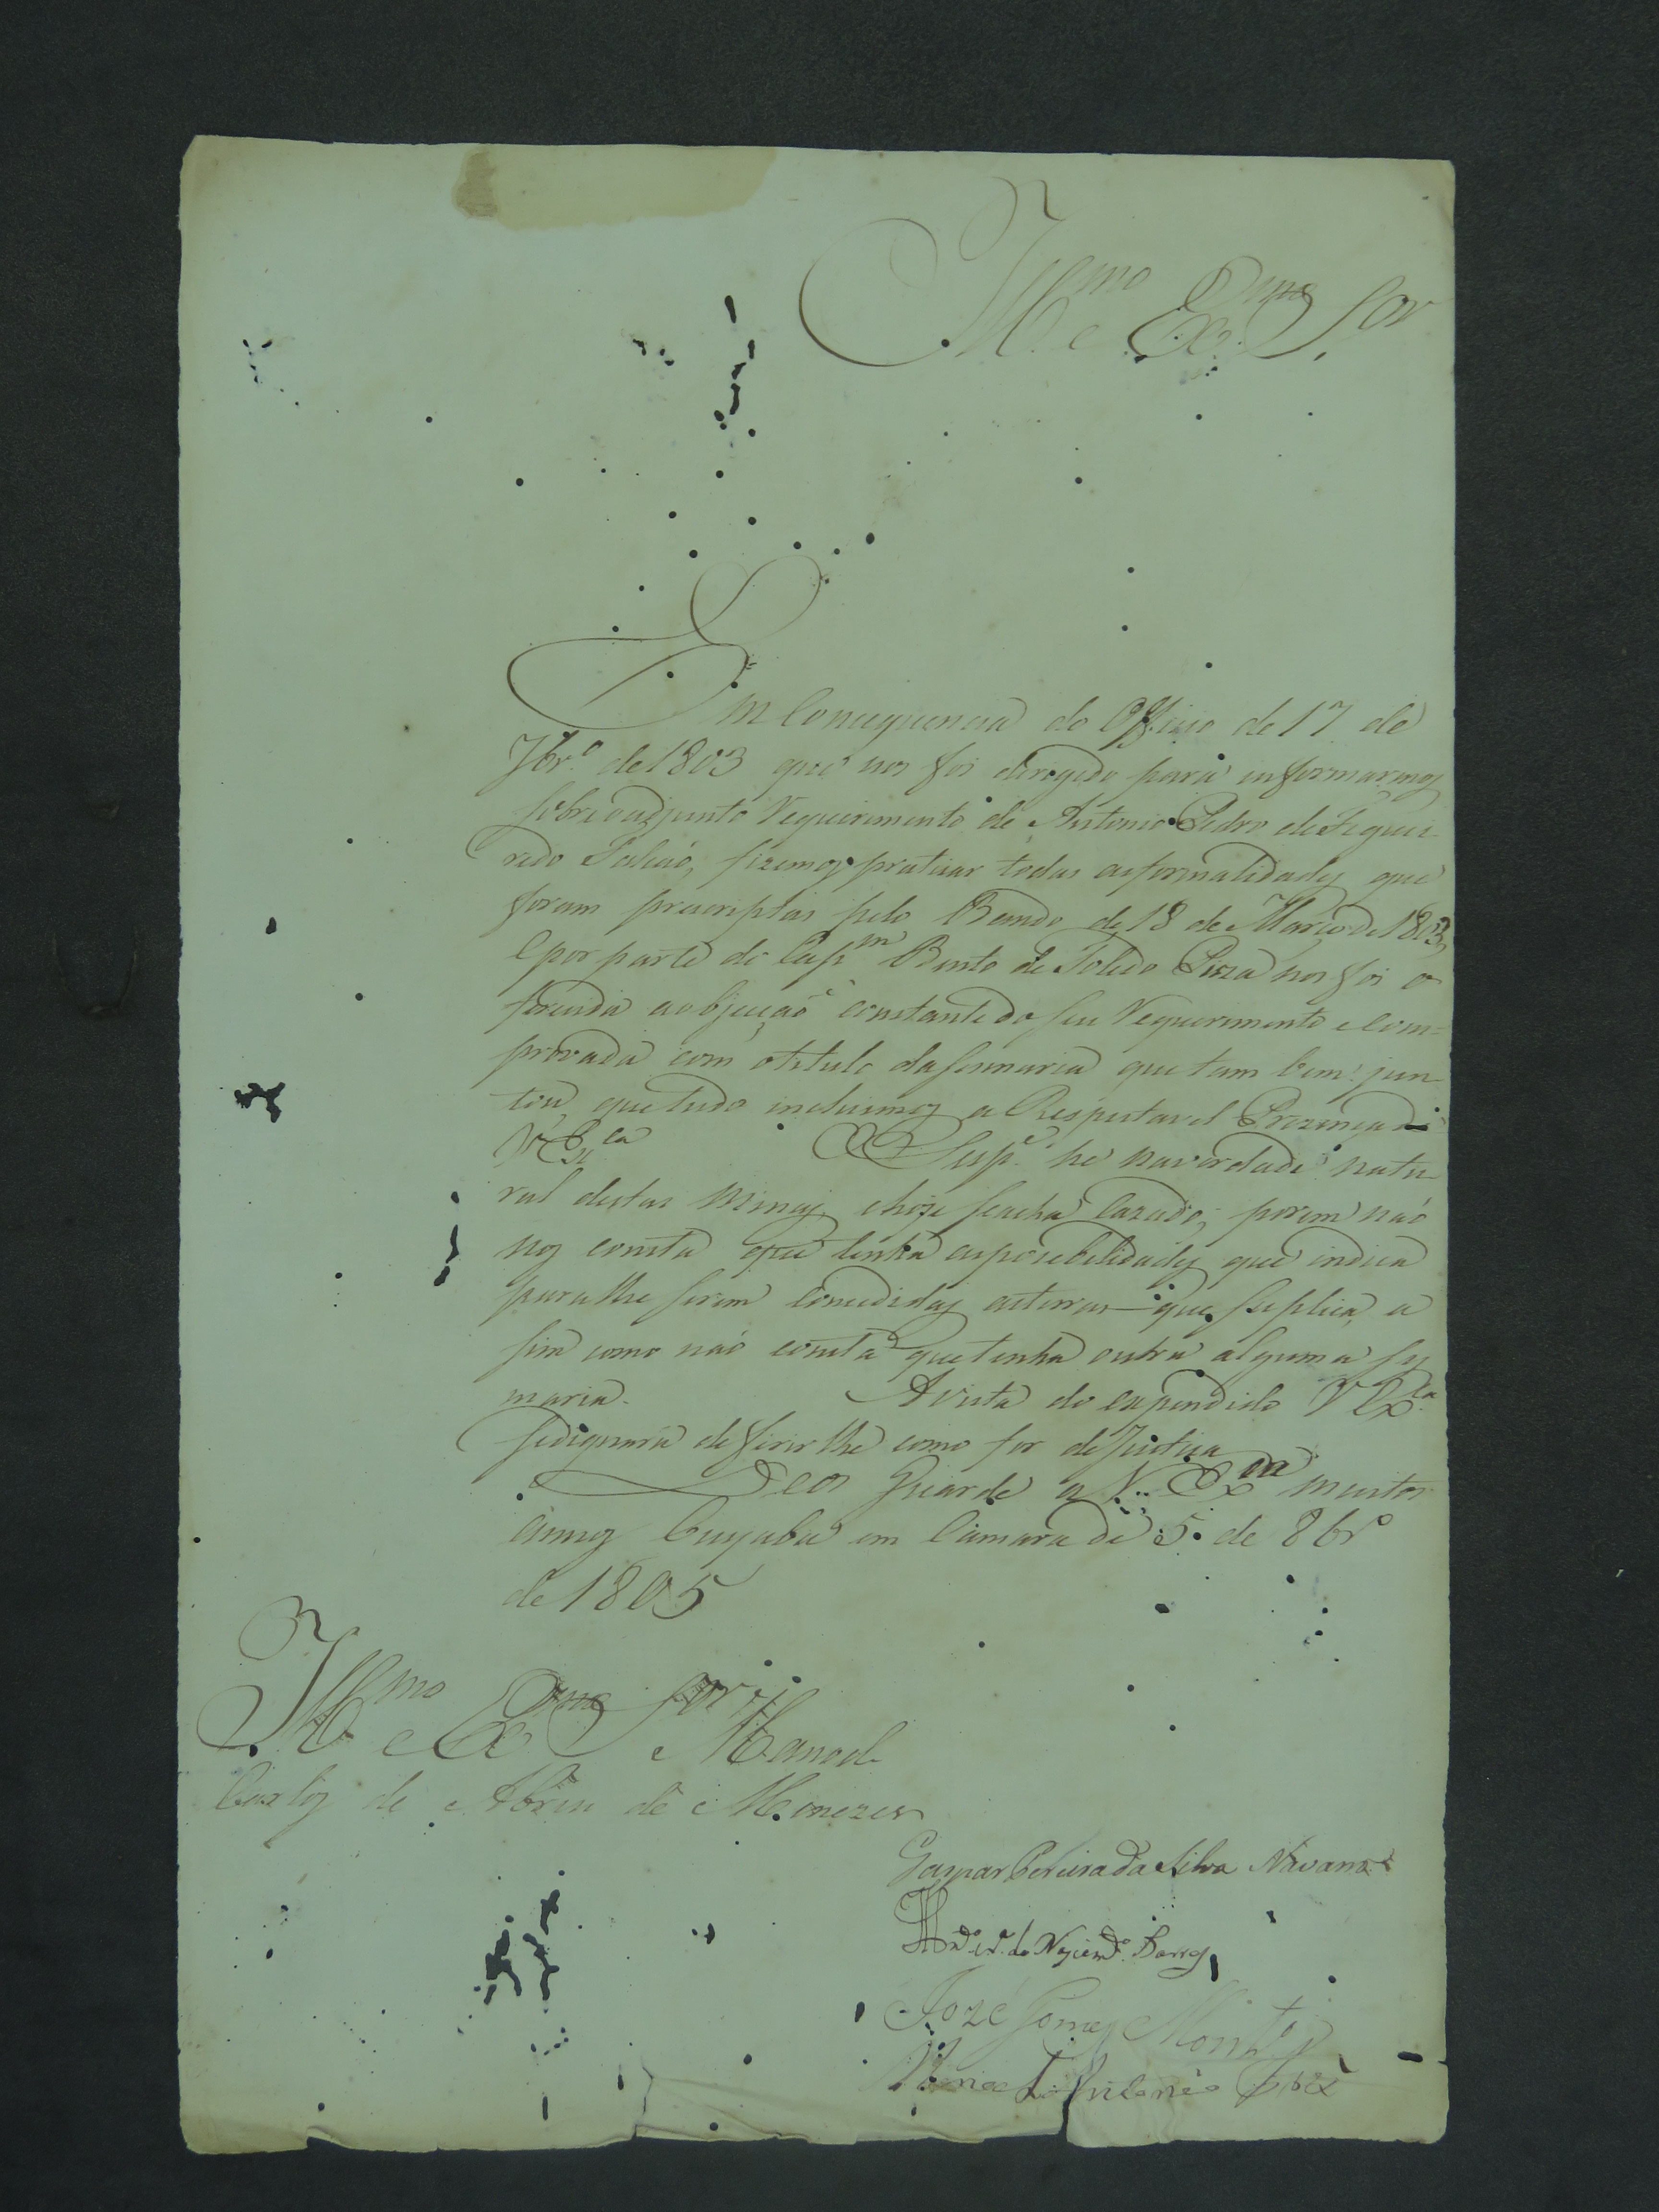 Ill.mo e Ex.mo Sor
Em Consequencia do Officio de 17 de
7br.o de 1803 que nos foi dirogido para informarmos
sobre o adjunto Requerimento de Antonio Pedro de Figuei-
redo Falcaó, fizemos praticar todas as formalidades que
foram prescriptas pelo Bando de 18 de Março de 1803,
e por parte do Cap.m Bento de Toledo Piza nos foi o
ferecida a objecçaó constante do seu Requerimento e Com=
provada com o titulo da sesmaria que tam bem jun-
tou, que tudo incluimos a Respeitavel Prezença de
V. Ex.ca O Sup.e he na verdade natu-
ral destas Minas, e hoje se acha Cazado, porem naó
nos consta que tenha as posiebilidades que indica
para lhe serem Concedidas as terras que Suplica, a
sim como naó consta que tenha outra alguma ses
maria. A vista do expendido V Ex.ca
se dignará deferir lhe como for de Justiça
Deos Guarde a V. Ex.ca muitos
annos Cuyaba em Camara de 5 de 8br.o
de 1805
Ill.mo e Ex.mo Sor Manoel
Carlos de Abreu de Menezes
Gaspar Pereira da Silva Navarro
do Nascim.do Borges
Joze Gomes Montr.o